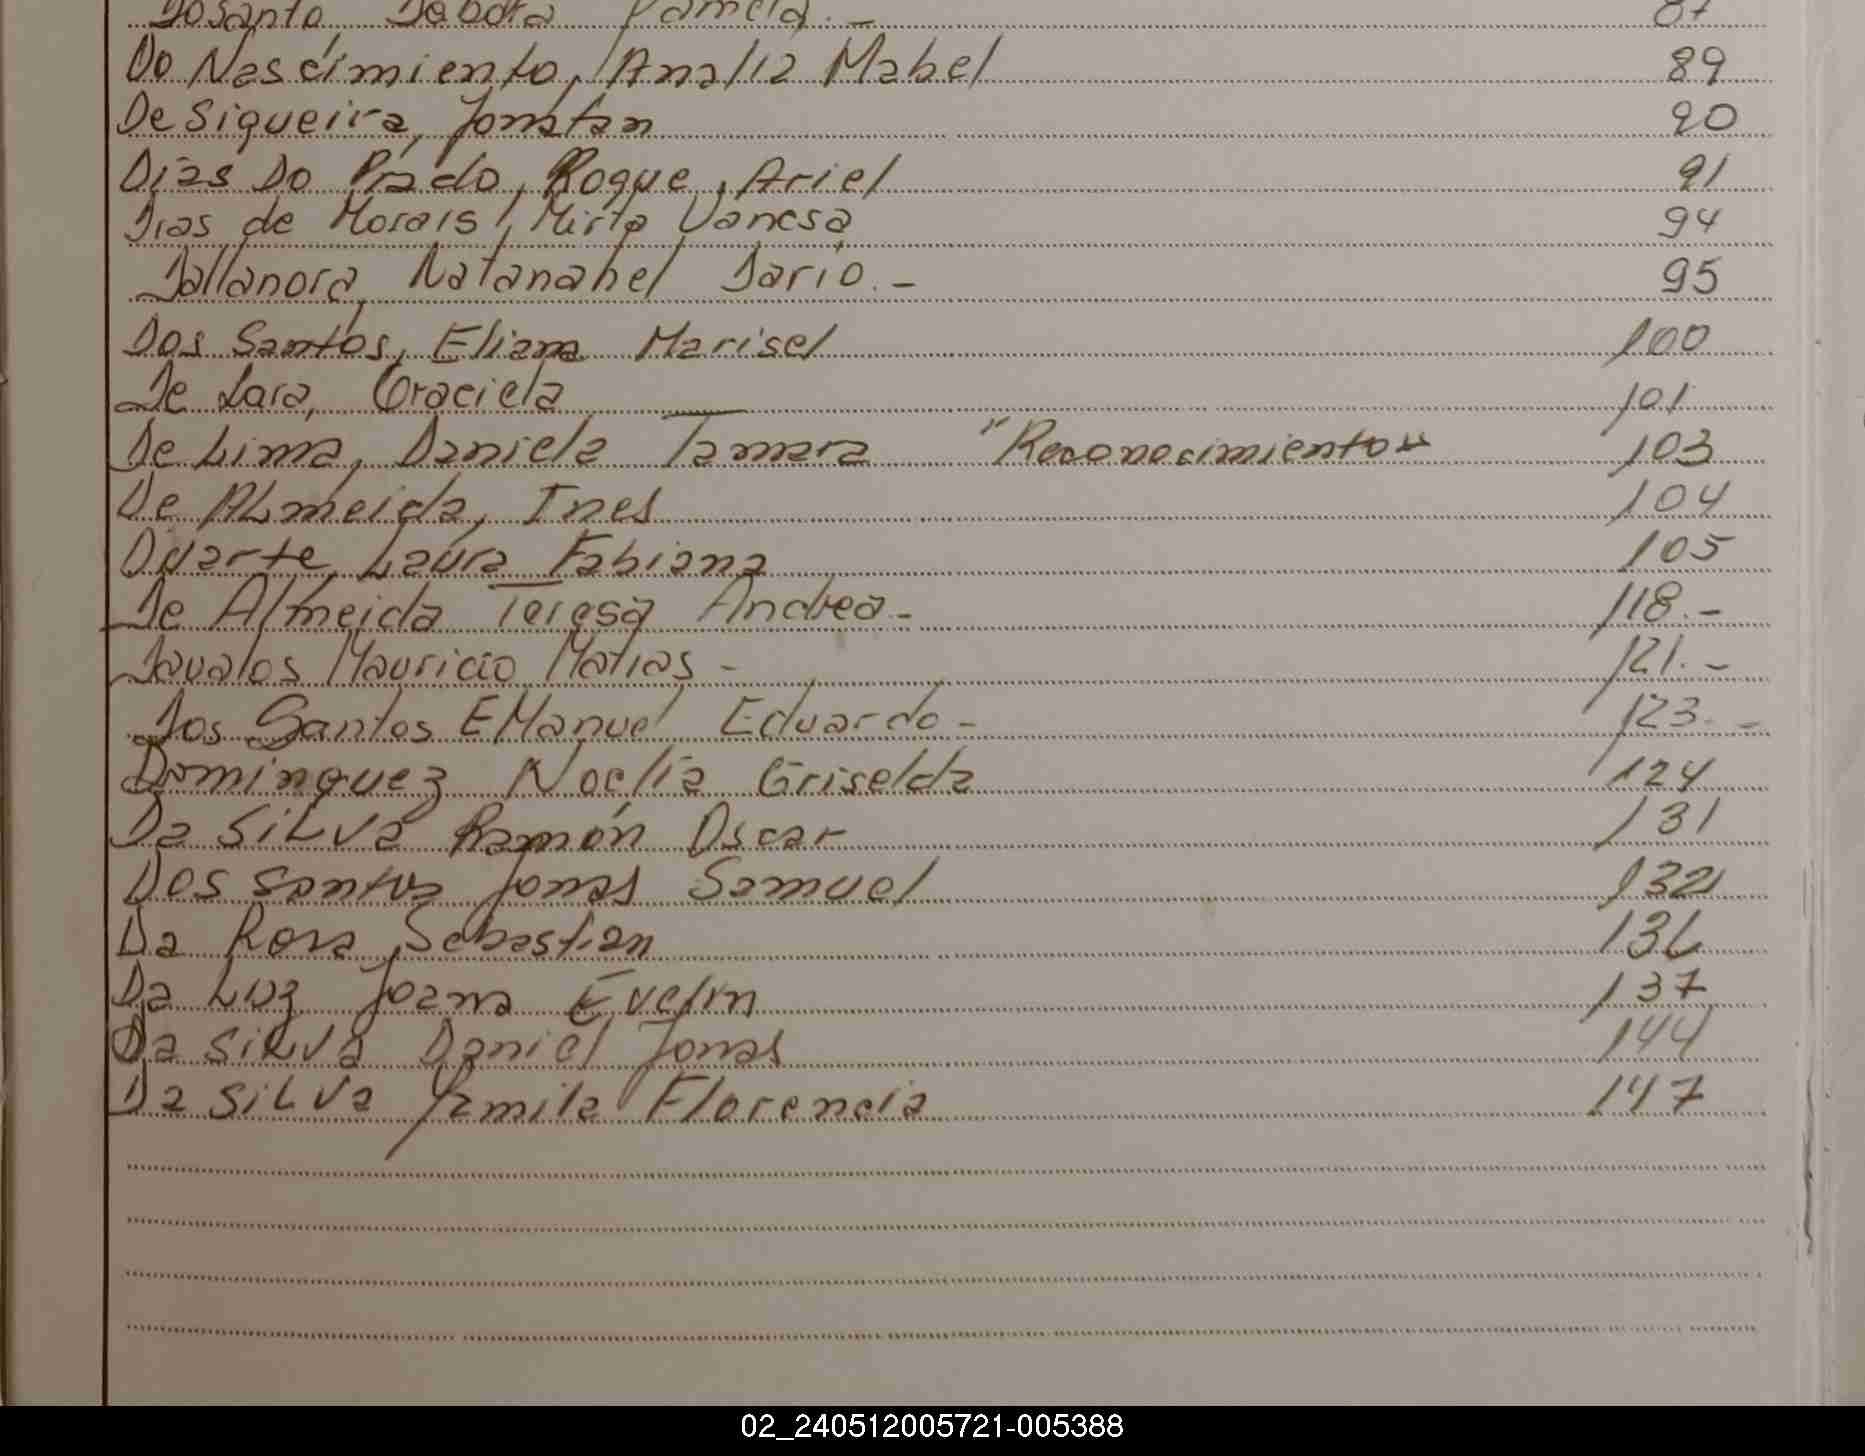 Dosanto Debora Pamela.- 87
Do Nascimiento, Analia Mabel 89
De Siqueira, Jonatan 90
Dias Do Prado, Roque, Ariel 91
Dias de Morais, Mirta Vanesa 94
Dallanora, Natanahel Dario.- 95
Dos Santos, Eliana Marisel 100
De Lara, Graciela 101
De Lima, Daniela Tamara "Reconocimiento" 103
De ALmeida, Ines 104
Duarte, Laura Fabiana 105
De Almeida Teresa Andrea- 118.-
Davalos Mauricio Matias- 121.-
Dos Santos EManuel Eduardo- 123.-
Dominguez Noelia Griselda 124
Da SiLVa Ramón Oscar 131
Dos santos Jonas Samuel 132
Da Rosa, Sebastian 136
Da Luz Joana Evelin 137
Da SiLVa Daniel Jonas 144
Da SiLVa Yamila Florencia 147
02_240512005721-005388